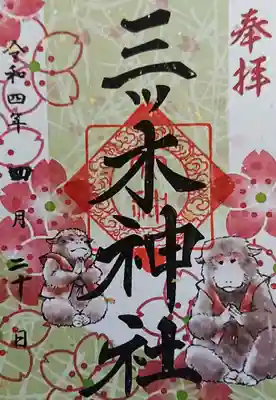 奉拝
三ッ木神社
令和四年四月二十日